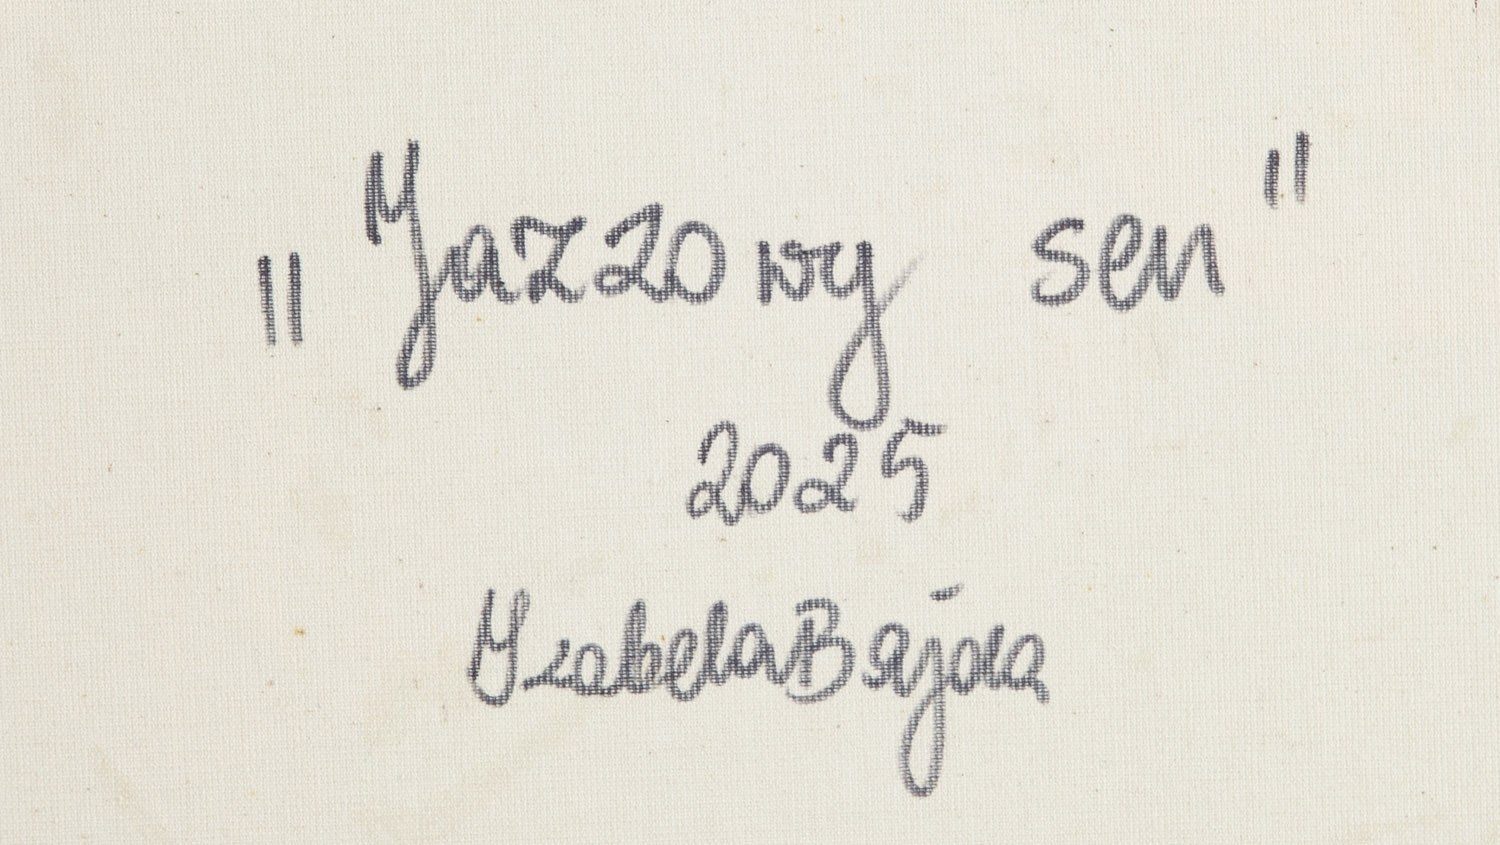 „Jazzowy sen"
2025
Izabela Bajda